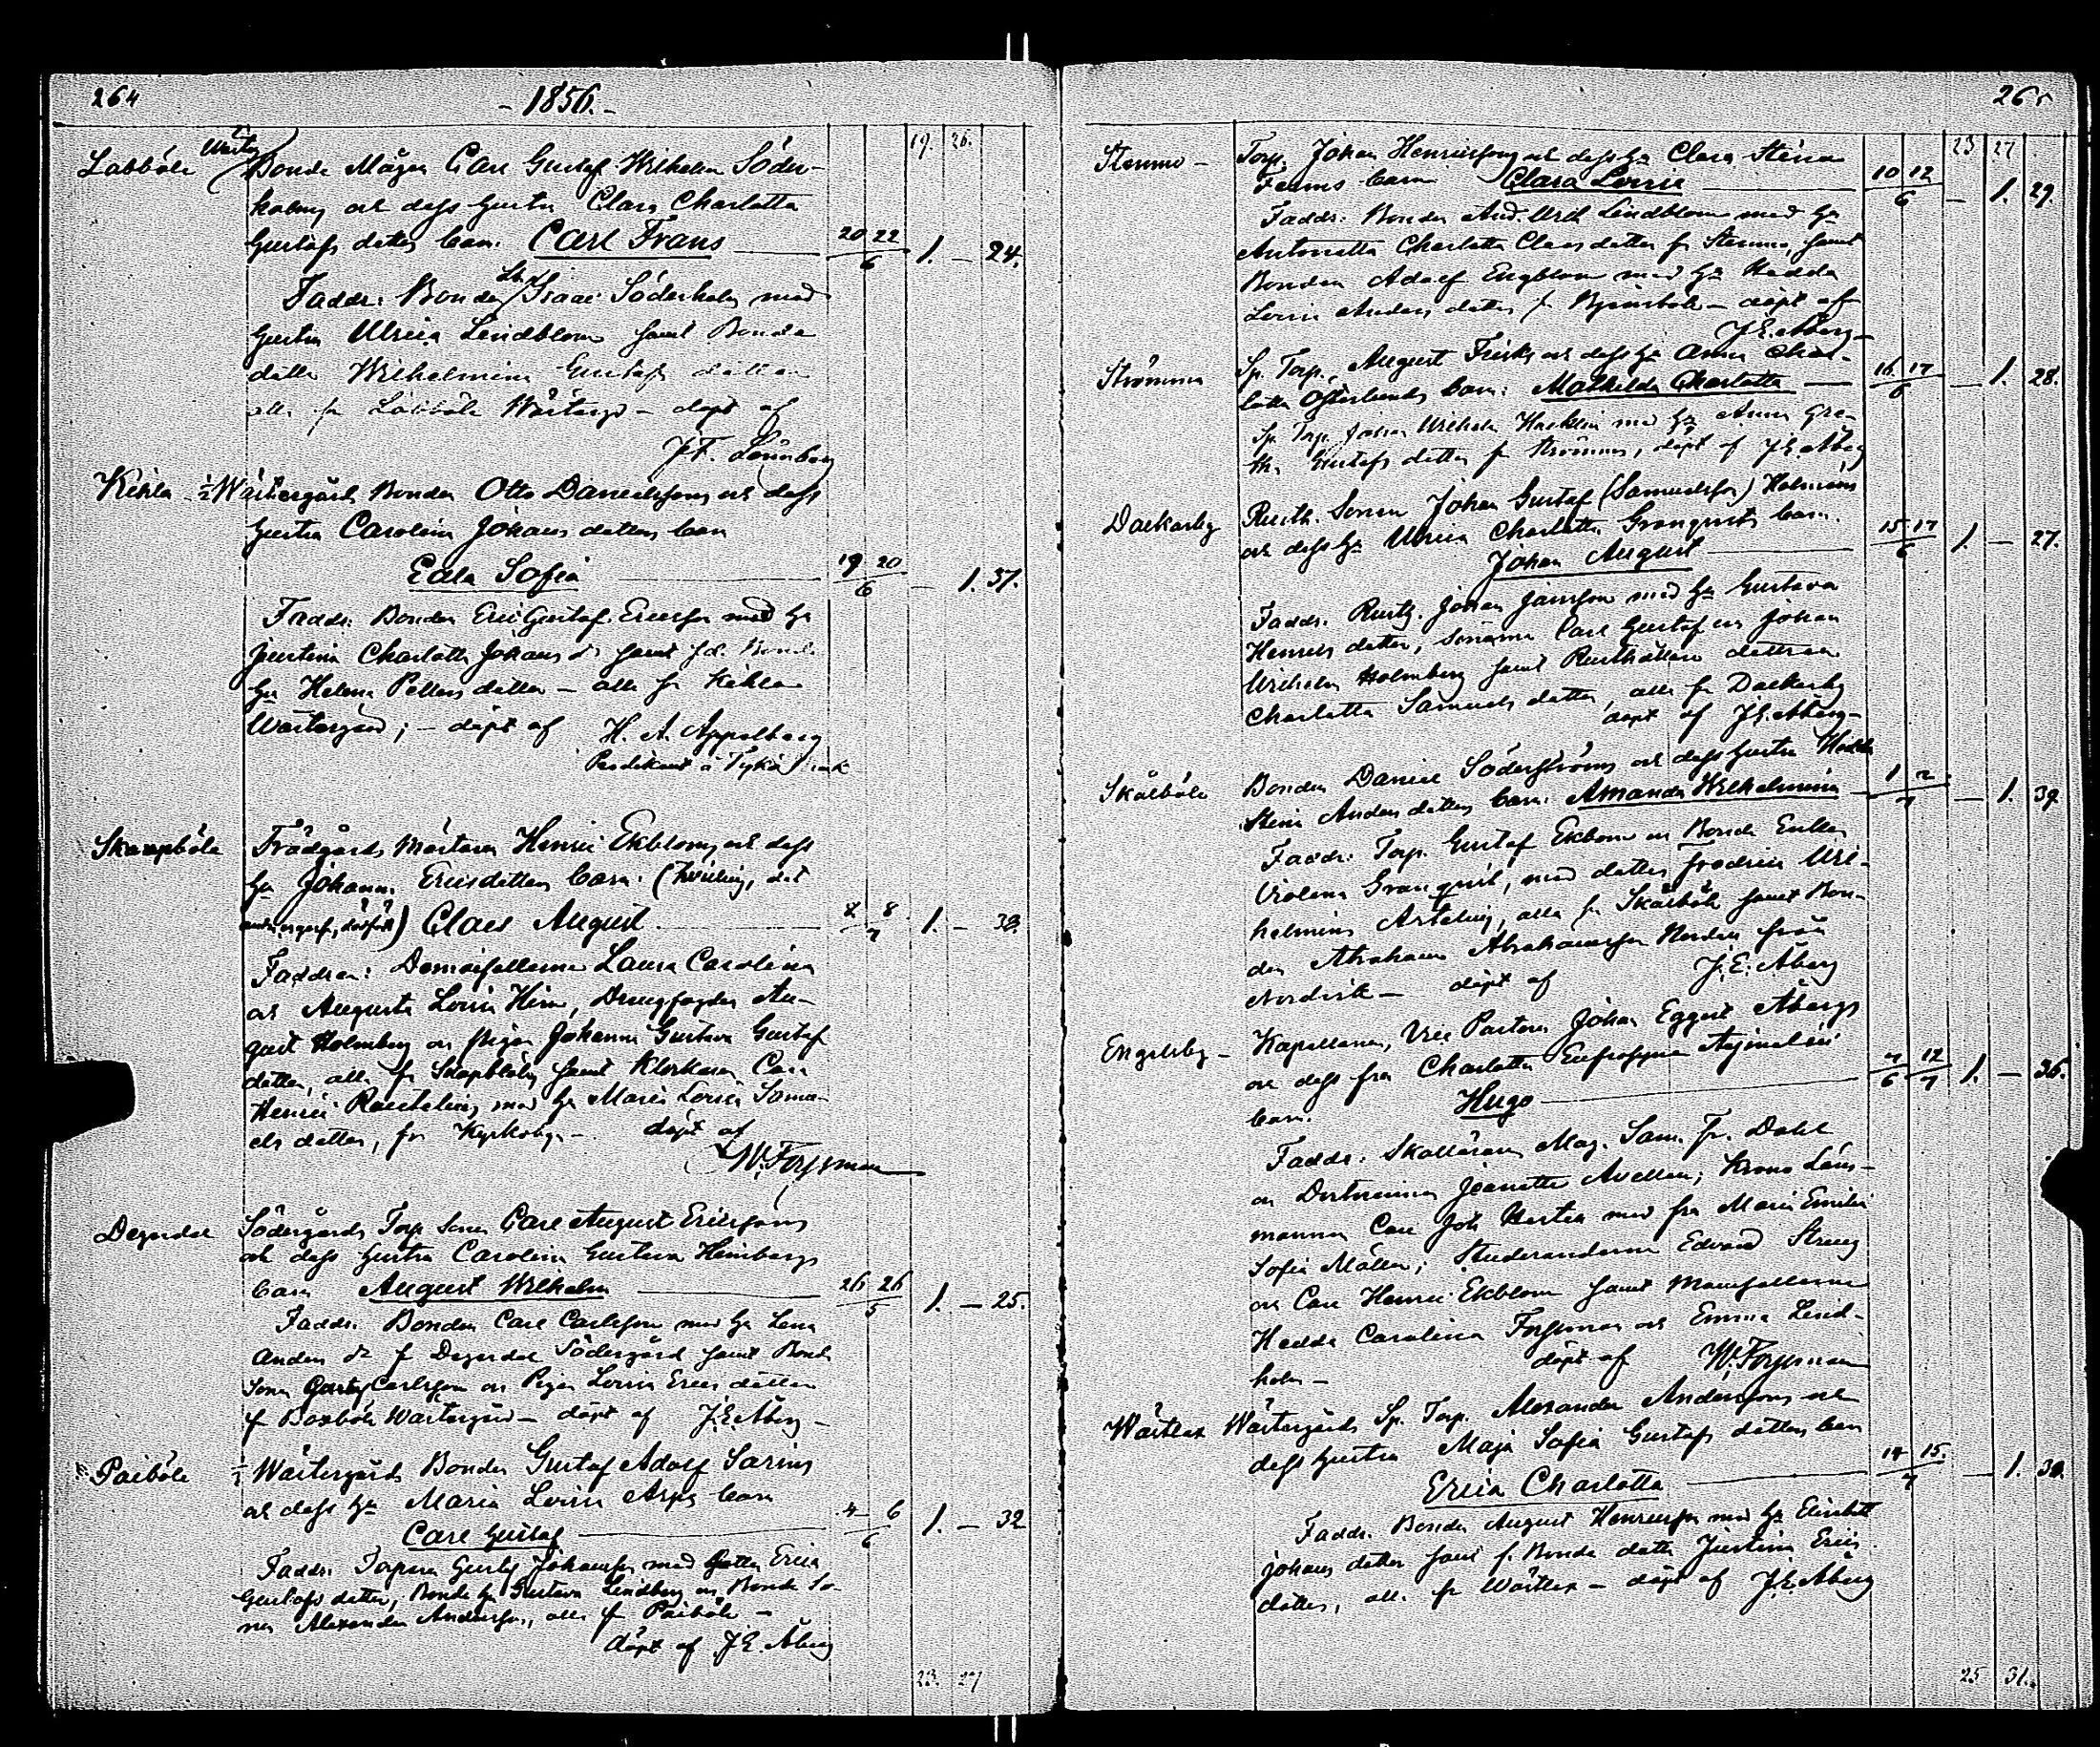 264
- 1856. -
19. 26.
Labböle Wäster Bonde Mågen Carl Gustaf Wilhelm Söder-
holms och dess hustru Clara Charlotta
Gustafs dotters barn. Carl Frans 20 22/6 1. — 24.
Faddr: Bonden Isaac Söderholm med
hustru Ulrica Lindblom samt Bonde
dottr Wilhelmina Gustafs dotter
alla fr Labböle Wästergd — döpt af
J.F. Lönnberg
Kihla ½ Wästergårds Bonden Otto Danielssons och dess
hustru Carolina Johans dotters barn
Edla Sofia 19 20/6 — 1. 37.
Faddr: Bonden Eric Gustaf Ericsson med h:
Justina Charlotta Johans dr samt fd. Bonde
h: Helena Petters dotter — alla fr Kihla
Wästergård; — döpt af H. A. Appelberg
Predikant å Tykö bruk
Skarpböle Trädgårds Mästaren Henric Ekbloms och dess
h: Johanna Ericsdotters barn: (tvilling, det
andra ogift, dödfödt) Claes August 8/7 1. — 38.
Faddrar: Demoisellerna Laura Carolina
och Augusta Lovisa Hirn, Drängfogden Au-
gust Holmberg och pigan Johanna Gustava Gustaf
dotter, alla fr Skarpböle samt Klockaren Carl
Henric Rautelius med h: Maria Lovisa Samu-
els dotter, fr Kyrkoby — döpt af
W. Forssman
Degerdal Södergårds Torp Sonen Carl August Ericssons
och dess hustru Carolina Gustava Heinbergs
barn August Wilhelm 26 26/5 1. — 25.
Faddr. Bonden Carl Carlsson med h: Lena
Anders dr fr Degerdal Södergård samt Bonde
Sonen Gustaf Carlsson och Pigan Lovisa Erics dotter
fr Boxböle Wästergård — döpt af J.E. Åberg —
Paiböle ½ Wästergårds Bonden Gustaf Adolf Sarins
och dess h: Maria Lovisa Arps barn
Carl Gustaf 4 6/6 1. — 32
Faddr. Torparen Gustaf Johansson med hustru Erica
Gustafs dotter, Bonde h: Gustava Lindberg och Bonde So-
nen Alexander Andersson, alla fr Paiböle —
döpt af J.E. Åberg
23. 27
265
23 27
Stenmo — Torp. Johan Henricssons och dess h: Clara Stina
Ferms barn Clara Lovisa 10 12/6 — 1. 29.
Faddr: Bonden And. Ulric Lindblom med h:
Antonetta Charlotta Claes dotter fr Stenmo, samt
Bonden Adolf Engblom med h: Hedda
Lovisa Anders dotter fr Björnböle — döpt af
J.E. Åberg —
Strömma Sp. Torp. August Frisks och dess h: Anna Char-
lotta Österlunds barn: Mathilda Charlotta 16 17/6 — 1. 28.
Sp. Torp. Johan Wilhelm Hacklin med h: Anna Gre-
tha Gustafs dotter fr Strömma, döpt af J.E. Åberg
Dalkarby Rusth. Sonen Johan Gustaf (Samuelsson) Holmens
och dess h: Ulrica Charlotta Granqvists barn.
Johan August 15 17/6 1. — 27.
Faddr. Rusth. Johan Jansson med h: Gustava
Henrics dotter, Sönerna Carl Gustaf och Johan
Wilhelm Holmberg samt Rusthållare dottren
Charlotta Samuels dotter, alla fr Dalkarby
döpt af J.E. Åberg —
Skålböle Bonden Daniel Söderströms och dess hustru Hedda
Stina Anders dotters barn: Amanda Wilhelmina 1 2/7 — 1. 39.
Faddr: Torp. Gustaf Ekbom och Bonde Enkan
Violena Granqvist, med dotter Fredrica Wil-
helmina Artelius, alla fr Skålböle samt Bon-
den Abraham Abrahamsson Norden från
Nordvik — döpt af J.E. Åberg
Engelsby — Kapellanen, Vice Pastoren Johan Eggert Åbergs
och dess fru Charlotta Eufrosyne Argimeléi
barn. Hugo 4/6 12/7 1. — 36.
Faddr: Skolläraren Mag. Sam. Fr. Dahl
och Doctorinnan Jeanette Avellan; Krono Läns-
mannen Carl Joh. Hertze med fru Maria Emilia
Sofia Möller; Studerandena Edvard Streng
och Carl Henric Ekblom samt Mamsellerna
Hedda Carolina Forssman och Emma Lind-
holm — döpt af W. Forssman
Wästlax Wästergårds Sp. Torp. Alexander Anderssons och
dess hustru Maja Sofia Gustafs dotters barn
Erica Charlotta 14 15/7 — 1. 30.
Faddr. Bonden August Henricsson med h: Elisabeth
Johans dotter samt f. Bonde dottr Justina Erics
dotter, alla fr Wästlax — döpt af J.E. Åberg
25 31.